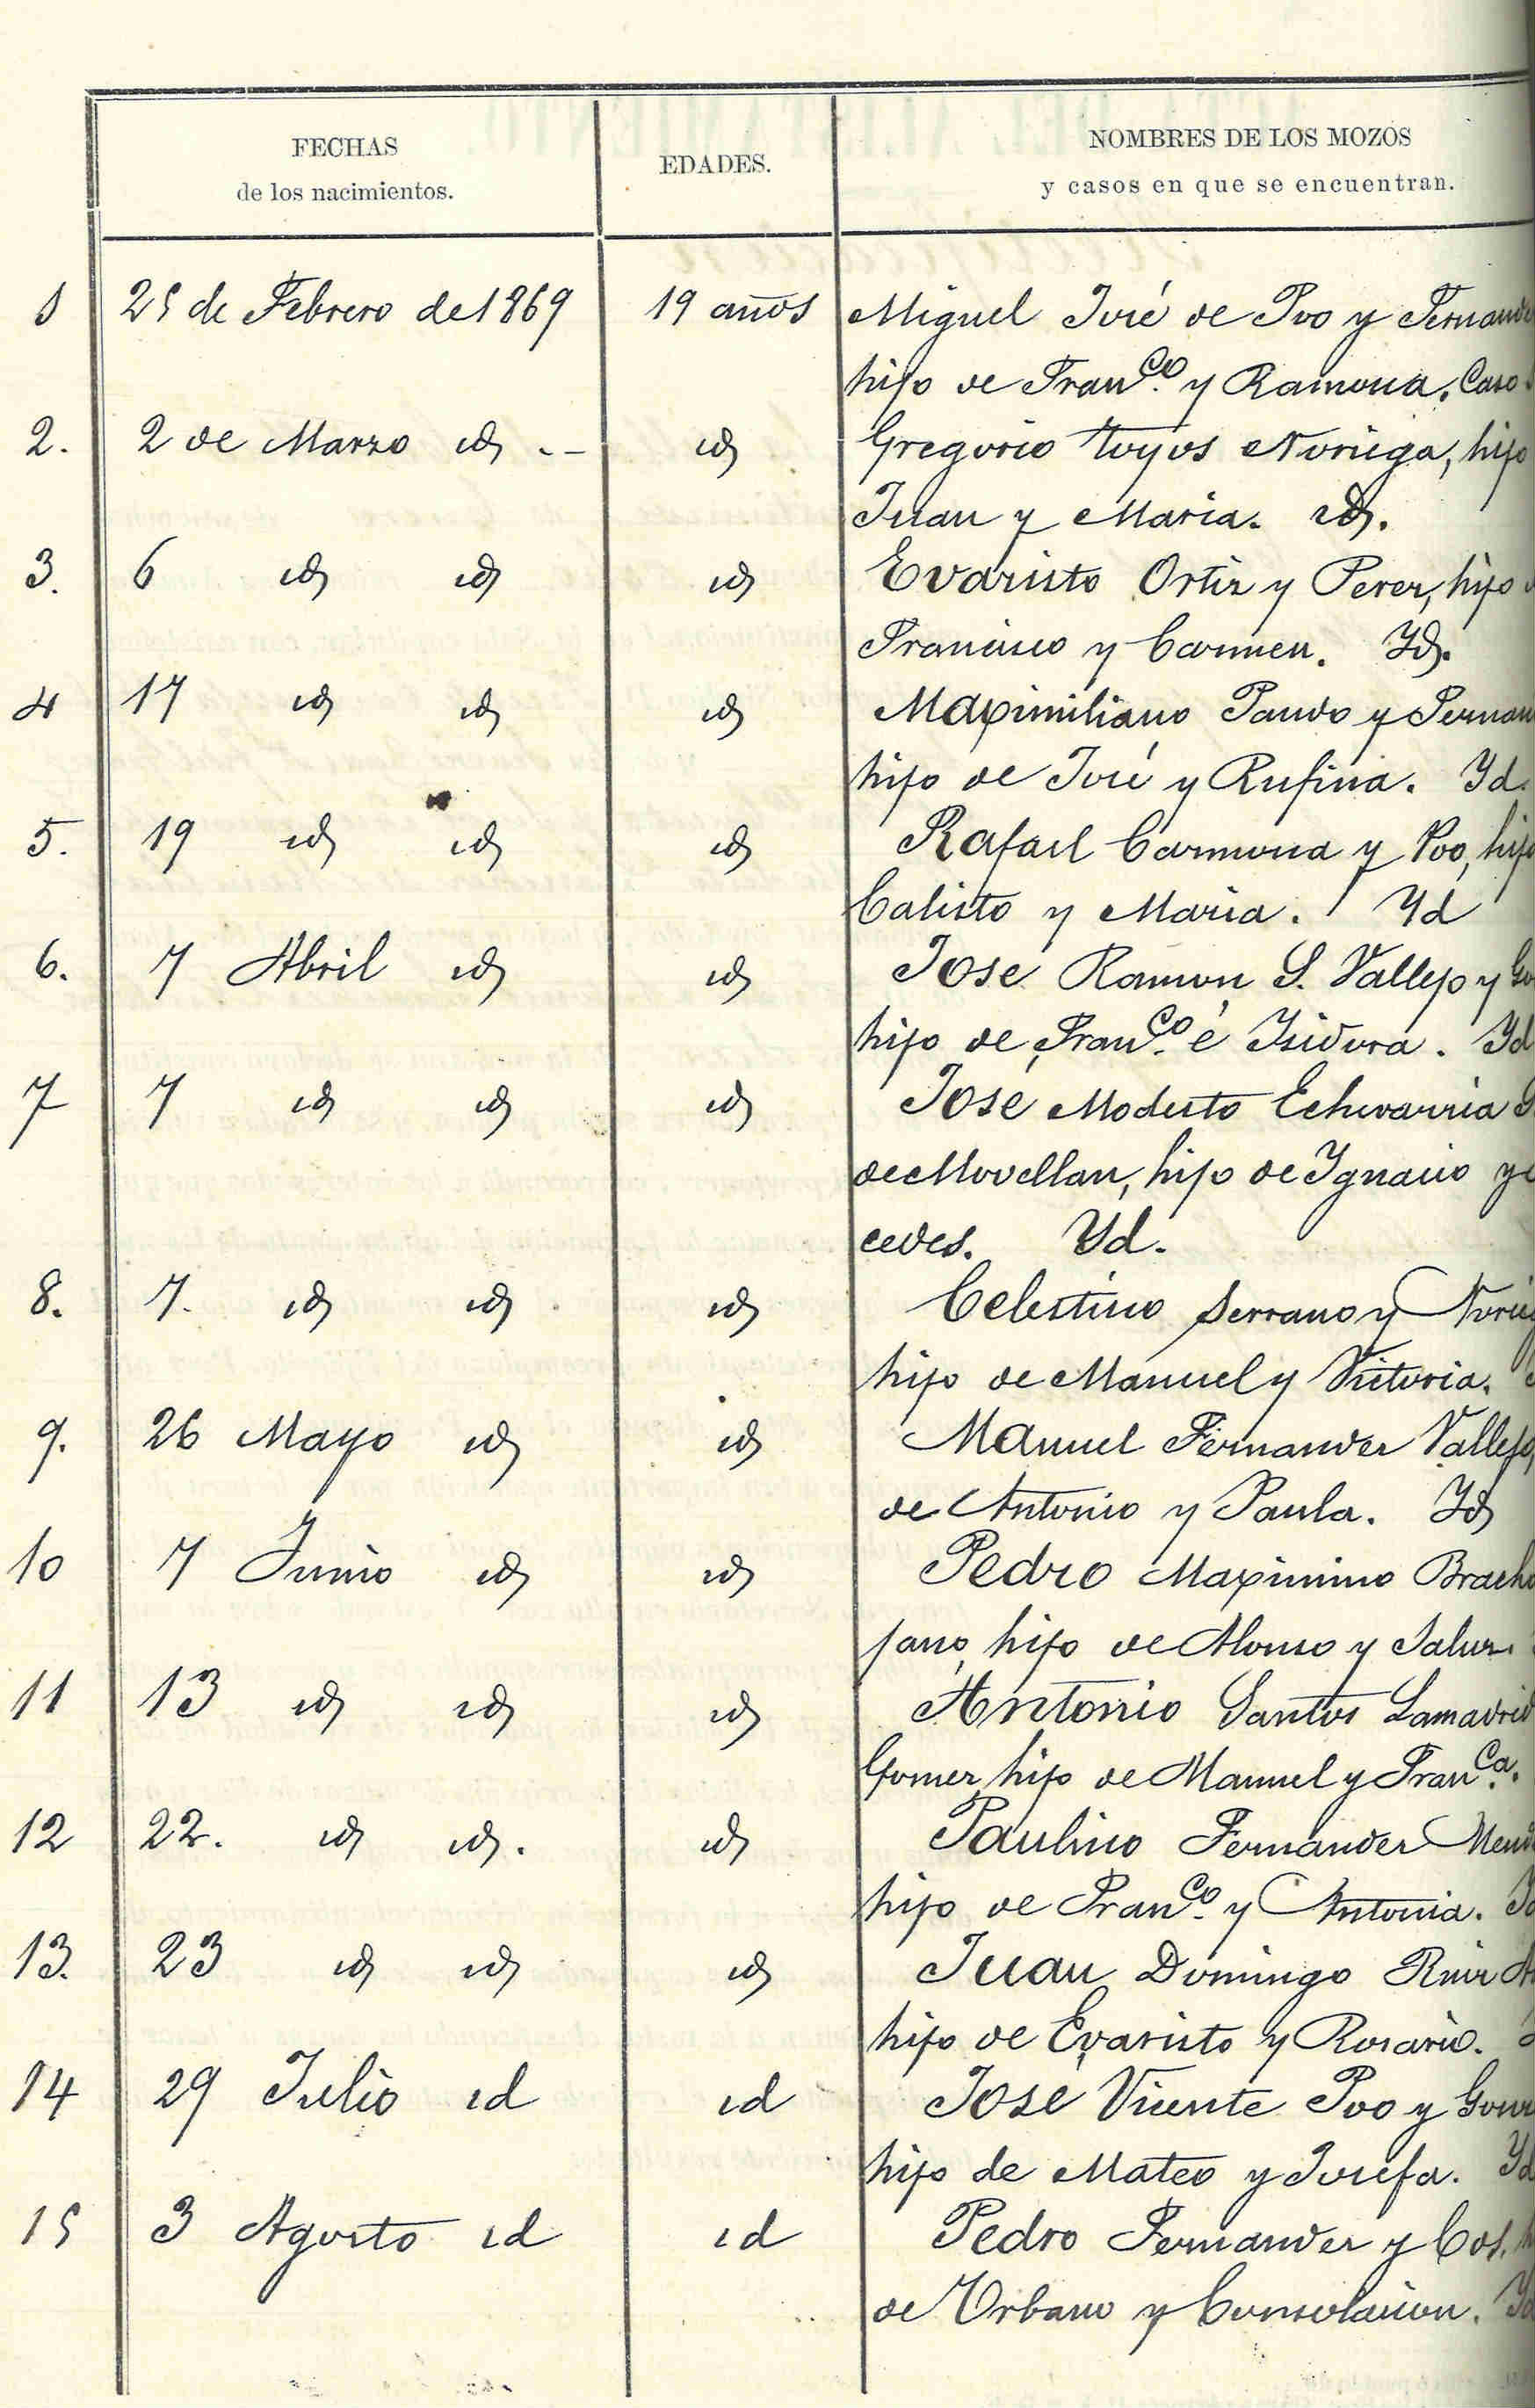 FECHAS
de los nacimientos.
EDADES.
NOMBRES DE LOS MOZOS
y casos en que se encuentran.
1 25 de Febrero de 1869 19 años Miguel José de Poo y Fernande
hijo de Fran.co y Ramona. Caso
2. 2 de Marzo id .- id Gregorio Noriega, hijo
Juan y Maria. id.
3. 6 id id id Evaristo Ortiz y Perez, hijo
Francisco y Carmen. Yd.
4 17 id id id Maximiliano Pando y Fernan
hijo de José y Rufina. Yd.
5. 19 id id id Rafael Carmona y Poo, hijo
Calisto y Maria. Yd
6. 7 Abril id id Jose Ramon S. Vallejo y Go
hijo de Fran.co é Isidora. Yd
7 7 id id id José Modesto Echevarria
de Movellan, hijo de Ignacio y
cedes. Yd.
8. 7. id id id Celestino Serrano y Norieg
hijo de Manuel y Victoria.
9. 26 Mayo id id Manuel Fernandez Vallejo,
de Antonio y Paula. Yd
10 7 Junio id id Pedro Maximino Bracho
jano, hijo de Alonso y Saluz.
11 13 id id id Antonio Santos Lamadrid
Gomez, hijo de Manuel y Fran.ca.
12 22. id id. id Paulino Fernandez Mend
hijo de Fran.co y Antonia.
13. 23 id id id Juan Domingo Ruiz
hijo de Evaristo y Rosario.
14 29 Julio id id Jose Vicente Poo y Gonz
hijo de Mateo y Josefa. Yd
15 3 Agosto id id Pedro Fernandez y Cos, h
de Urbano y Consolacion. Yd